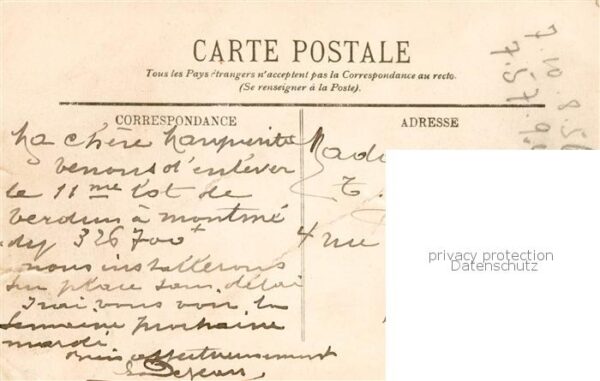 CARTE POSTALE
Tous les Pays étrangers n'acceptent pas la Correspondance au recto.
(Se renseigner à la Poste).
CORRESPONDANCE
Ma chère Marguerite
venons d'enlever
le 11me lot de
verdun à montmé
dy 326700+
nous installerons
sur place sans délai
Irai vous voir la
semaine prochaine
mardi
affectueusement
ADRESSE
Mad
4 rue
7. 10. 8. 56
7. 57.
privacy protection
Datenschutz